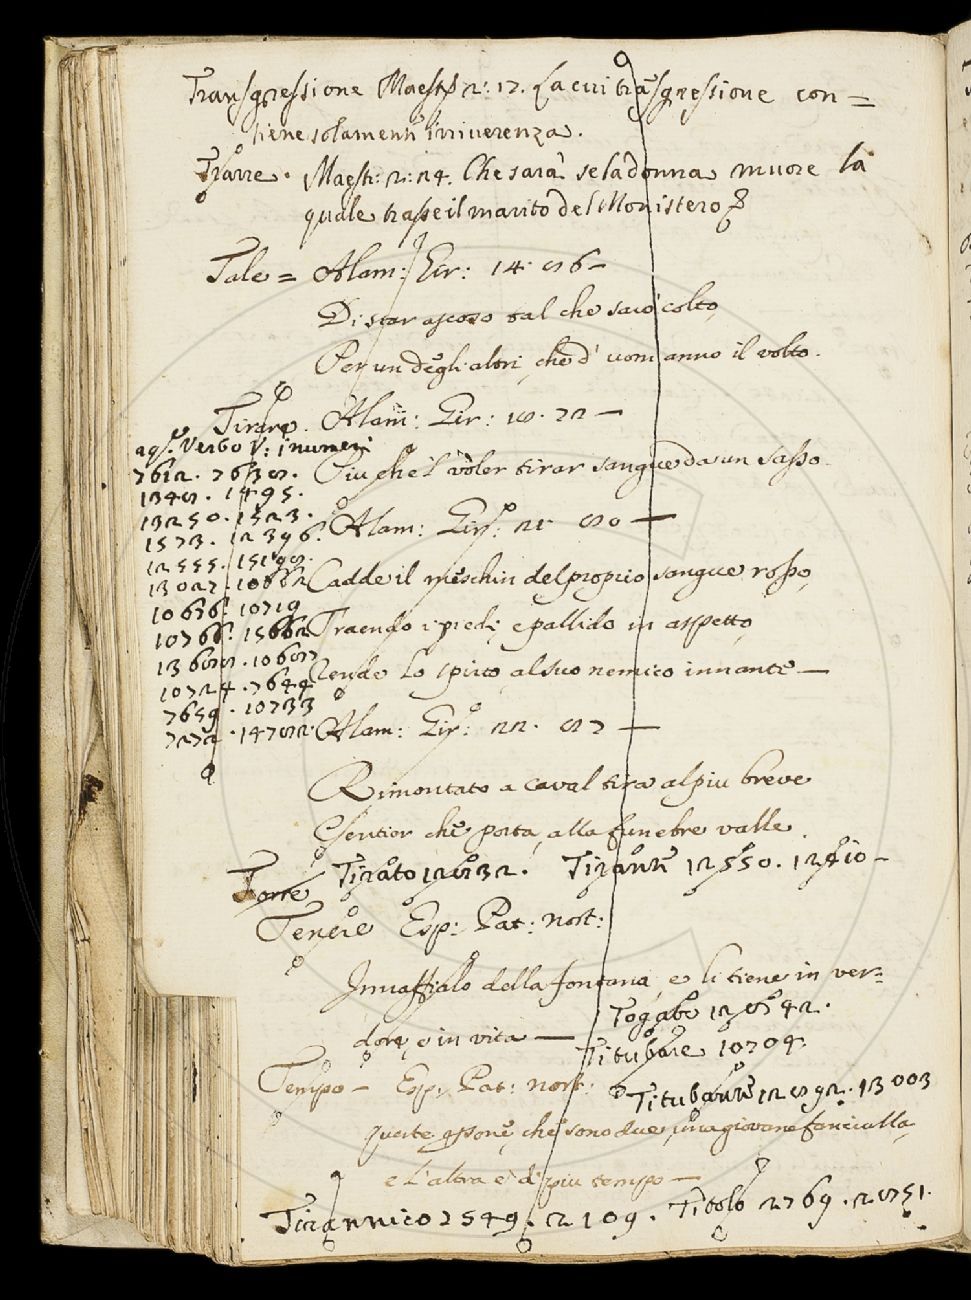 Transgressione Maestr. 2: 12. La cui trãsgressione con=
tiene solamente irriverenza.
Trarre. Maest: 2: 24. Che sarà se la donna muore la
quale trasse il marito del Monistero
Tale = Alam: Gir: 14. 86 –
Di star ascoso tal che saio colto,
Per un degli altri, che d' uom anno il volto.
Tirare. Alam: Gir: 18. 72 –
ag. Verbo V: i numeri
Piu che 'l voler tirar sangue da un sasso.
7612. 7638.
1348. 1495.
13250. 1523.
Alam: Gir: 21. 80 –
1573. 12396.
12555.
13027.
Cadde il meschin del proprio sangue rosso,
10636. 10719
Traendo i piedi, e pallido in aspetto,
10766. 15662
Rende lo spirto al suo nemico innante –
10724. 7644
7659. 10733
7272. 14782.
Alam: Gir: 22. 87 –
Rimontato a caval tira al piu breve
Sentier che porta alla funebre valle.
Torre Tirato 12832. Tirante 12550. 12810 –
Tenere Esp: Pat: nost:
Innaffialo della fontana, e li tiene in ver=
dore, e in vita –
Togato 12842.
Titubare 10704.
Tempo – Esp: Pat: nost:
Titubante 12892. 13003
queste persone, che sono due, una giovane fanciulla,
e l' altra è di piu tempo –
Tirannico 2549. 2109. Titolo 2769. 2851.